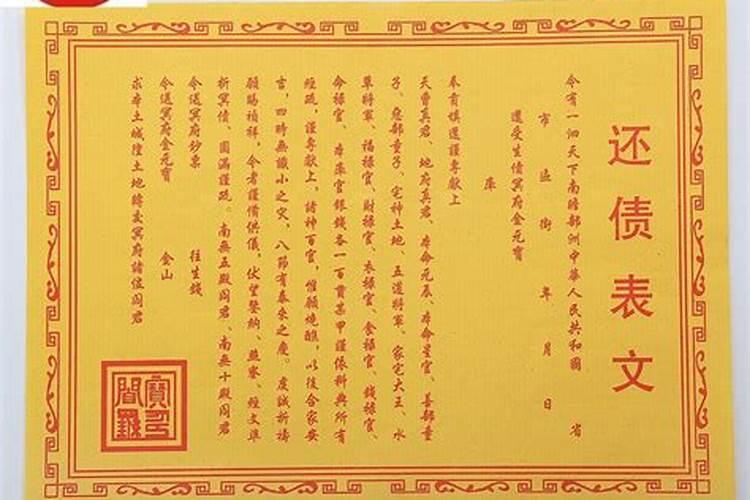 还债表文
今有一泗天下南瞻部洲中華人民共和國 省
市 區 街 年 月 日
還受生債冥府金元寳
庫
奉貢填還謹專献上
天曹真君、地府真君、本命元辰、本命星官、善部童
子、惡部童子、宅神土地、五道將軍、家宅大王、水
草將軍、福禄官、財禄官、衣禄官、食禄官、錢禄官、
命禄官、本庫官銀錢各一百貫某甲謹依科典所有
經疏，謹專献上，諸神百官，惟願燒醮，以後合家安
吉，四時無讖小之灾，八節有泰來之慶。虔誠祈禱
願賜禎祥，令者謹備供儀，伏望鑒納、照察、經文準
折冥債、圓滿謹疏。南無五殿阎君、南無十殿阎君
令送冥府鈔票 往生錢
令送冥府金元寳 金山
求本土城隍土地轉交冥府諸位阎君